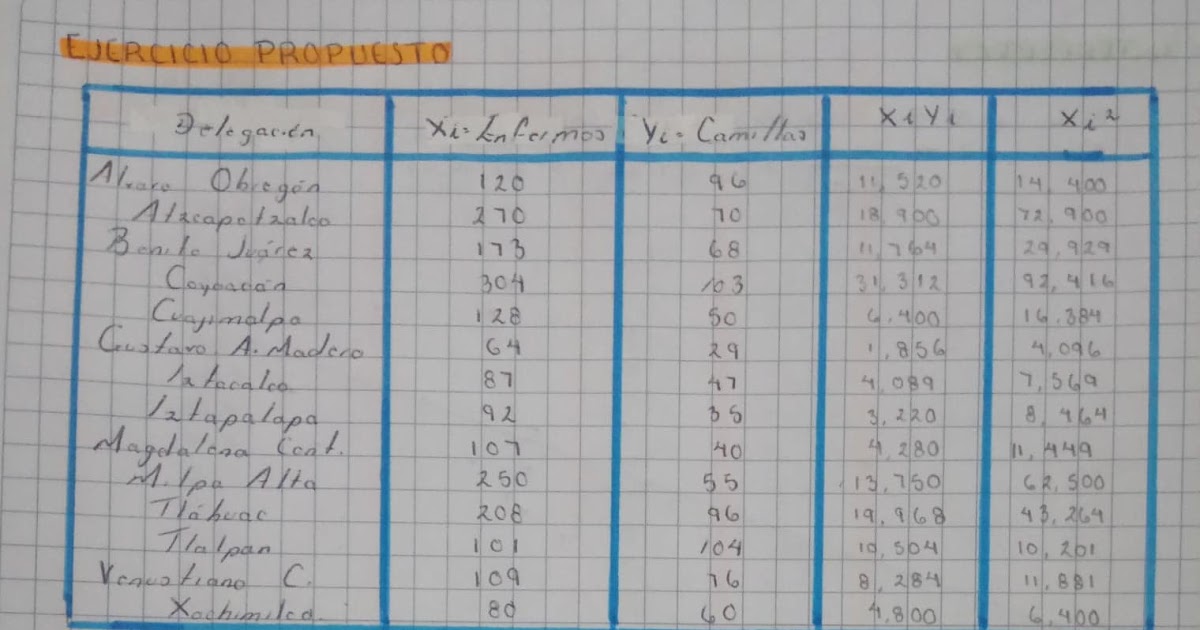 EJERCICIO PROPUESTO
Delegación Xi=Enfermos Yi=Camillas XiYi Xi²
Alvaro Obregón 120 96 11,520 14,400
Atzcapotzalco 270 70 18,900 72,900
Benito Juárez 173 68 11,764 29,929
Coyoacán 304 103 31,312 92,416
Cuajimalpa 128 50 6,400 16,384
Gustavo A. Madero 64 29 1,856 4,096
Iztacalco 87 47 4,089 7,569
Iztapalapa 92 35 3,220 8,464
Magdalena Cont. 107 40 4,280 11,449
Milpa Alta 250 55 13,750 62,500
Tláhuac 208 96 19,968 43,264
Tlalpan 101 104 10,504 10,201
Venustiano C. 109 76 8,284 11,881
Xochimilco. 80 60 4,800 6,400